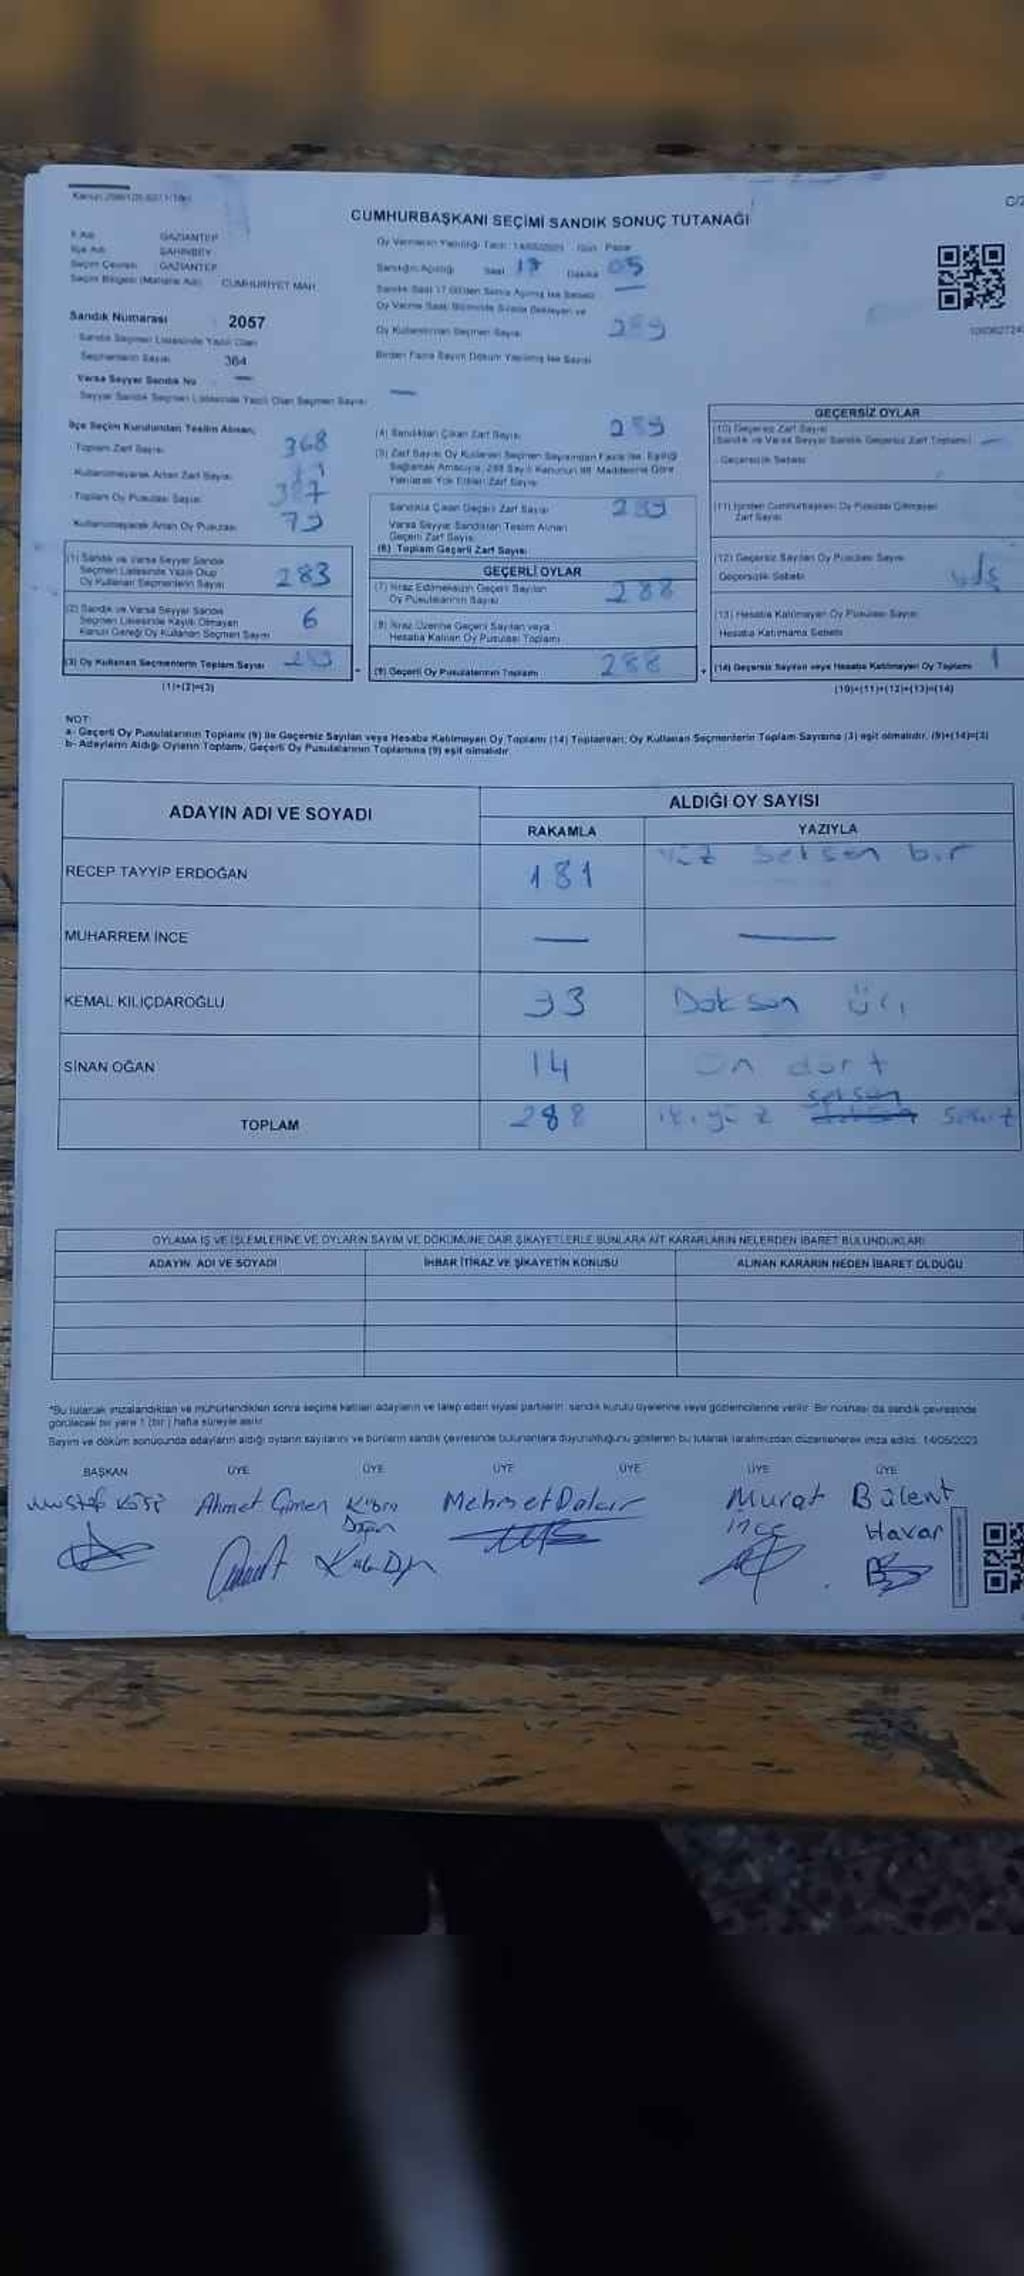 CUMHURBAŞKANI SEÇİMİ SANDIK SONUÇ TUTANAĞI
C/2
GAZİANTEP
ŞAHİNBEY
Seçim Çevresi GAZİANTEP
Seçim Bölgesi (Mahalle Adı) CUMHURİYET MAH.
Sandık Numarası 2057
Sandık Seçmen Listesinde Yazılı Olan
Seçmenlerin Sayısı 364
Varsa Seyyar Sandık No —
Seyyar Sandık Seçmen Listesinde Yazılı Olan Seçmen Sayısı —
Oy Vermenin Yapıldığı Tarih 14/05/2023 Gün Pazar
Sandığın Açıldığı Saat 17 Dakika 05
Sandık Saat 17.00'den Sonra Açılmış İse Sebebi —
Oy Verme Saati Bitiminde Sırada Bekleyen ve
Oy Kullandırılan Seçmen Sayısı 289
Birden Fazla Sayım Döküm Yapılmış İse Sayısı
İlçe Seçim Kurulundan Teslim Alınan;
Toplam Zarf Sayısı 368
Kullanılmayarak Artan Zarf Sayısı
Toplam Oy Pusulası Sayısı
Kullanılmayarak Artan Oy Pusulası 79
(1) Sandık ve Varsa Seyyar Sandık
Seçmen Listesinde Yazılı Olup
Oy Kullanan Seçmenlerin Sayısı 283
(2) Sandık ve Varsa Seyyar Sandık
Seçmen Listesinde Kayıtlı Olmayan
Kanun Gereği Oy Kullanan Seçmen Sayısı 6
(3) Oy Kullanan Seçmenlerin Toplam Sayısı 289
(1)+(2)=(3)
(4) Sandıktan Çıkan Zarf Sayısı 289
(5) Zarf Sayısı Oy Kullanan Seçmen Sayısından Fazla ise, Eşitliği
Sağlamak Amacıyla, 298 Sayılı Kanunun 98. Maddesine Göre
Yakılarak Yok Edilen Zarf Sayısı
Sandıkta Çıkan Geçerli Zarf Sayısı 289
Varsa Seyyar Sandıktan Teslim Alınan
Geçerli Zarf Sayısı
(6) Toplam Geçerli Zarf Sayısı
GEÇERLİ OYLAR
(7) İtiraz Edilmeksizin Geçerli Sayılan
Oy Pusulalarının Sayısı 288
(8) İtiraz Üzerine Geçerli Sayılan veya
Hesaba Katılan Oy Pusulası Toplamı
(9) Geçerli Oy Pusulalarının Toplamı 288
GEÇERSİZ OYLAR
(10) Geçersiz Zarf Sayısı
(Sandık ve Varsa Seyyar Sandık Geçersiz Zarf Toplamı) —
Geçersizlik Sebebi
(11) İçinden Cumhurbaşkanı Oy Pusulası Çıkmayan
Zarf Sayısı
(12) Geçersiz Sayılan Oy Pusulası Sayısı
Geçersizlik Sebebi
(13) Hesaba Katılmayan Oy Pusulası Sayısı
Hesaba Katılmama Sebebi
(14) Geçersiz Sayılan veya Hesaba Katılmayan Oy Toplamı 1
(10)+(11)+(12)+(13)=(14)
NOT:
a- Geçerli Oy Pusulalarının Toplamı (9) ile Geçersiz Sayılan veya Hesaba Katılmayan Oy Toplamı (14) Toplamları; Oy Kullanan Seçmenlerin Toplam Sayısına (3) eşit olmalıdır. (9)+(14)=(3)
b- Adayların Aldığı Oyların Toplamı, Geçerli Oy Pusulalarının Toplamına (9) eşit olmalıdır.
ADAYIN ADI VE SOYADI
ALDIĞI OY SAYISI
RAKAMLA YAZIYLA
RECEP TAYYİP ERDOĞAN 181 Yüz seksen bir
MUHARREM İNCE — —
KEMAL KILIÇDAROĞLU 93 Doksan üç
SİNAN OĞAN 14 On dört
TOPLAM 288 ikiyüz seksen sekiz
OYLAMA İŞ VE İŞLEMLERİNE VE OYLARIN SAYIM VE DÖKÜMÜNE DAİR ŞİKAYETLERLE BUNLARA AİT KARARLARIN NELERDEN İBARET BULUNDUKLARI
ADAYIN ADI VE SOYADI İHBAR İTİRAZ VE ŞİKAYETİN KONUSU ALINAN KARARIN NEDEN İBARET OLDUĞU
*Bu tutanak imzalandıktan ve mühürlendikten sonra seçime katılan adayların ve talep eden siyasi partilerin sandık kurulu üyelerine veya gözlemcilerine verilir. Bir nüshası da sandık çevresinde
görülecek bir yere 1 (bir) hafta süreyle asılır.
Sayım ve döküm sonucunda adayların aldığı oyların sayılarını ve bunların sandık çevresinde bulunanlara duyurulduğunu gösteren bu tutanak tarafımızdan düzenlenerek imza edildi. 14/05/2023
BAŞKAN ÜYE ÜYE ÜYE ÜYE ÜYE ÜYE
Ahmet Kübra Mehmet Murat Bülent
Doğan Havar